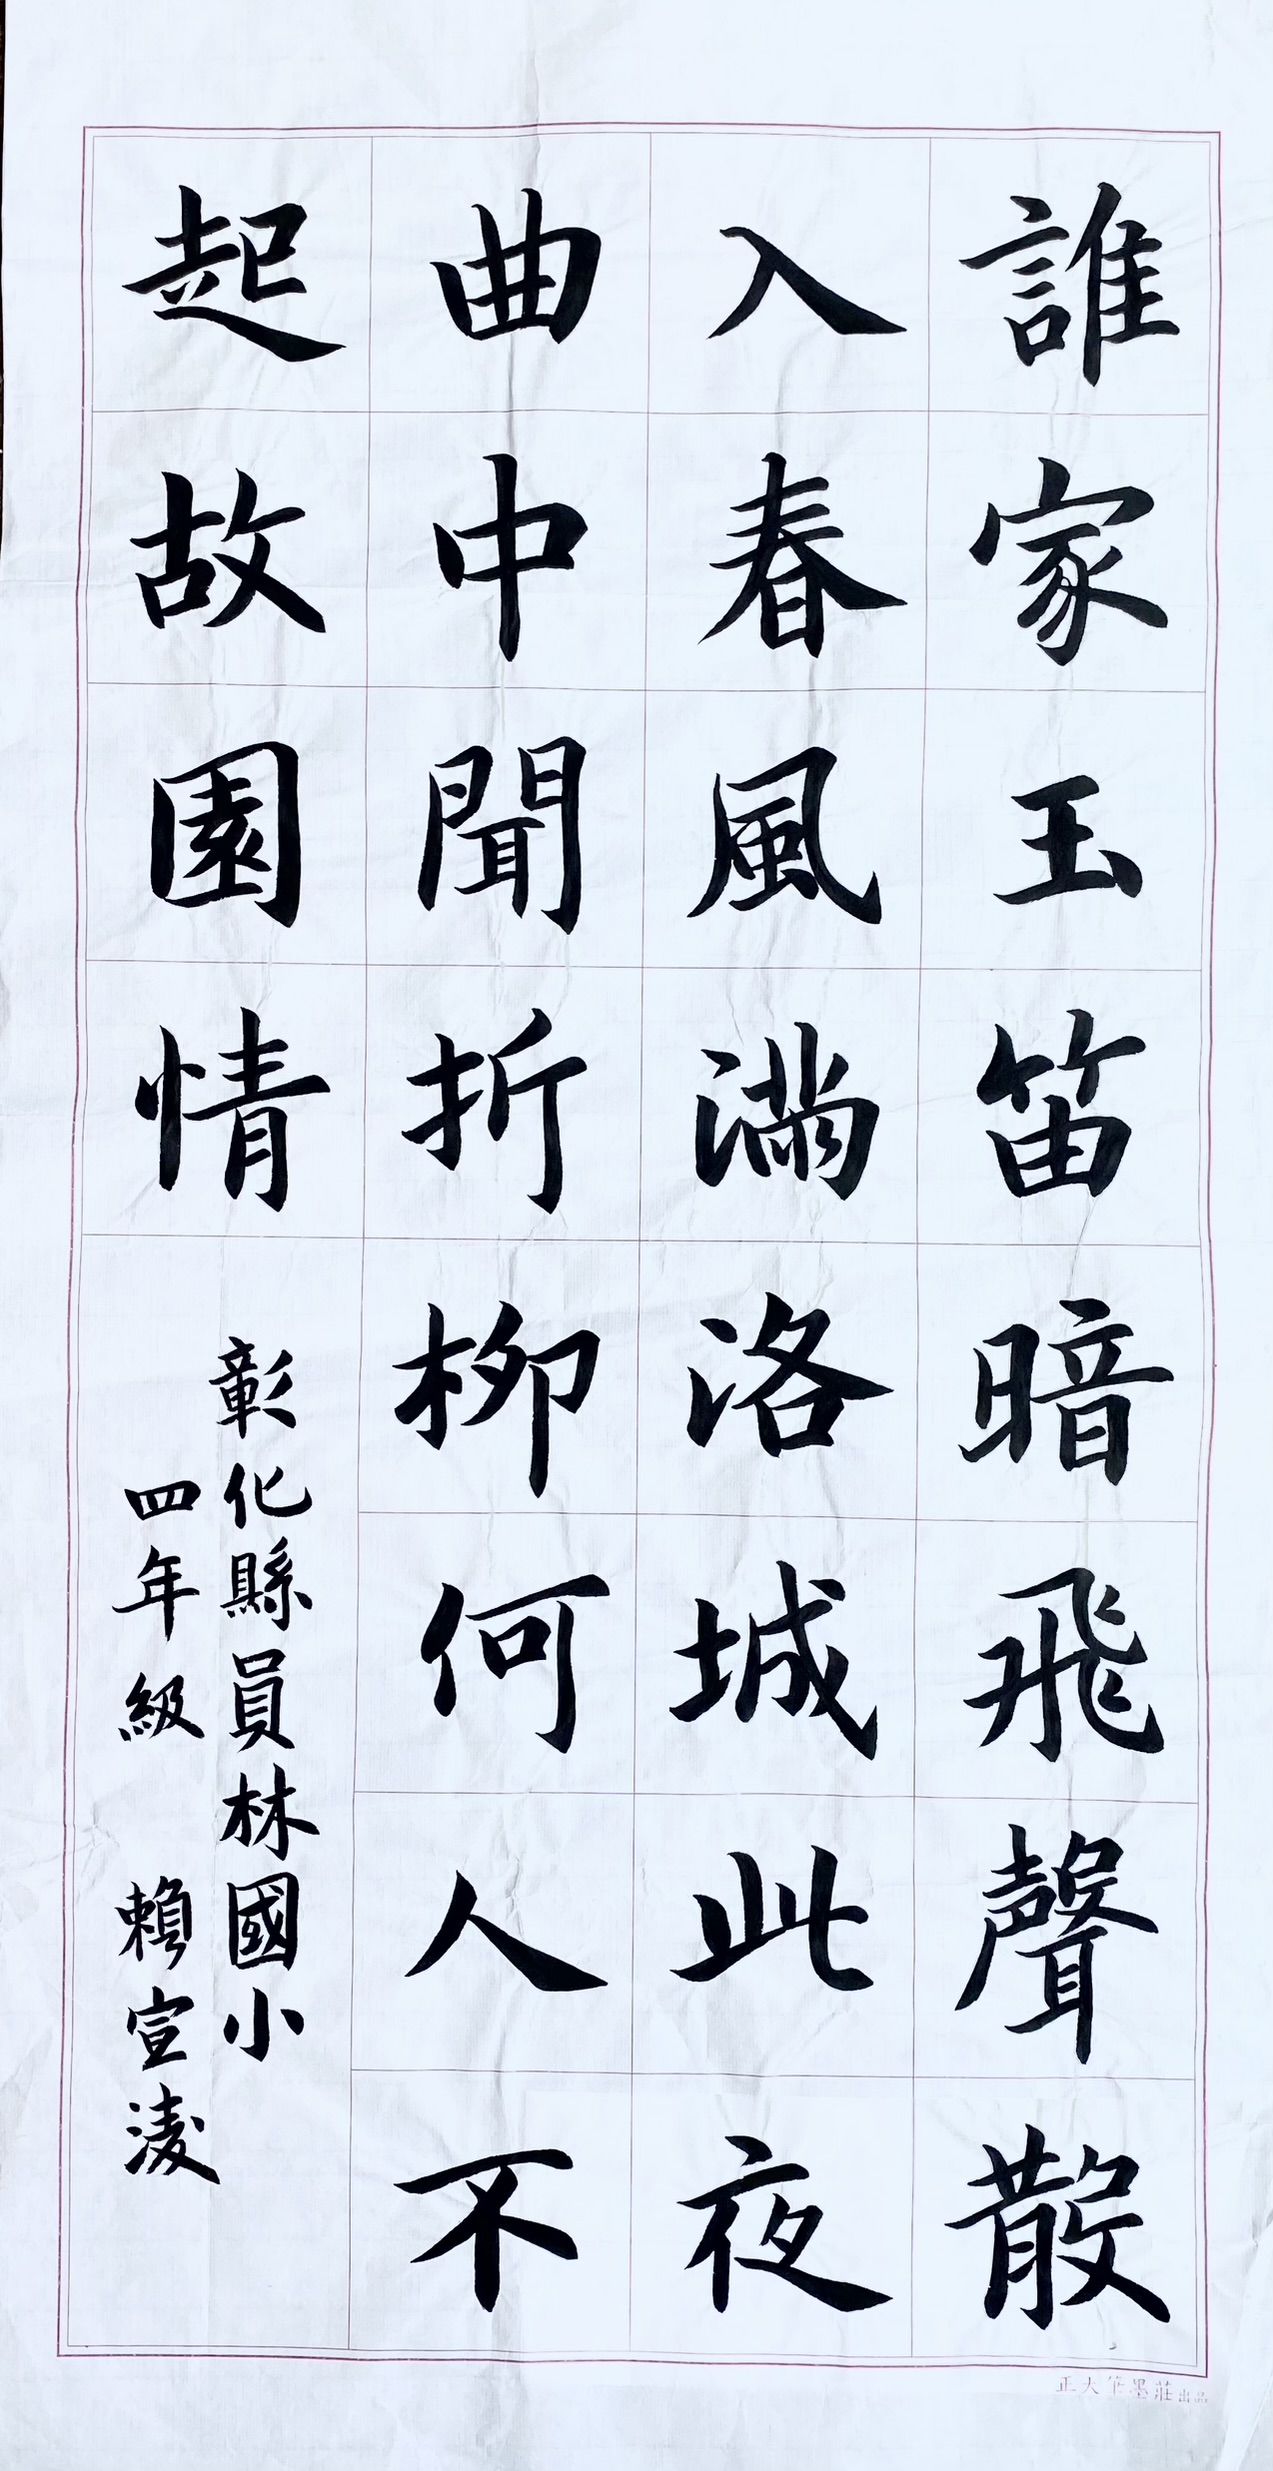 誰家玉笛暗飛聲散
入春風滿洛城此夜
曲中聞折柳何人不
起故園情
彰化縣員林國小
四年級 賴宣淩
正大筆墨莊出品